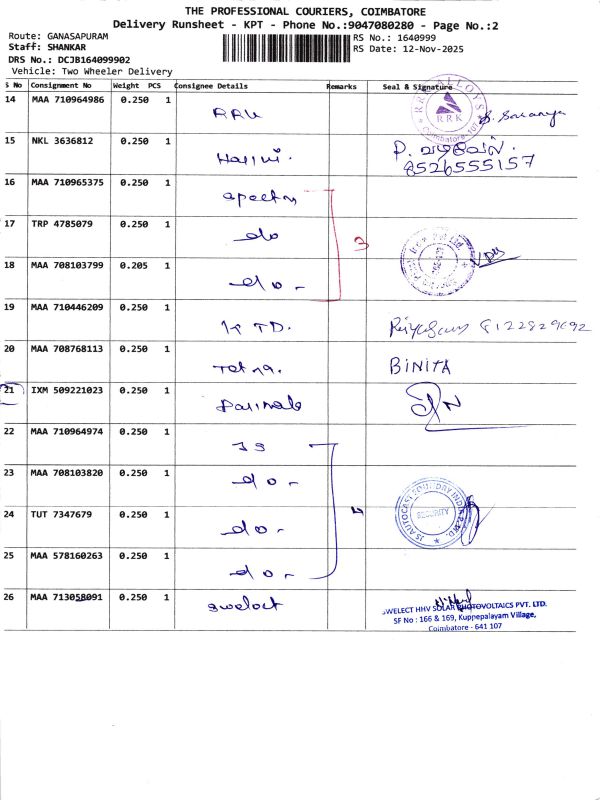 THE PROFESSIONAL COURIERS, COIMBATORE
Delivery Runsheet - KPT - Phone No.:9047080280 - Page No.:2
Route: GANASAPURAM
RS No.: 1640999
Staff: SHANKAR
RS Date: 12-Nov-2025
DRS No.: DCJB164099902
Vehicle: Two Wheeler Delivery
S No Consignment No Weight PCS Consignee Details Remarks Seal & Signature
14 MAA 710964986 0.250 1 RRK
RRK ALLOYS
RRK
Coimbatore-107
15 NKL 3636812 0.250 1 Harini. P. வடிவேல்
8526555157
16 MAA 710965375 0.250 1
17 TRP 4785079 0.250 1 do
3
18 MAA 708103799 0.205 1 do -
19 MAA 710446209 0.250 1 8122829692
20 MAA 708768113 0.250 1 BINITA
21 IXM 509221023 0.250 1
22 MAA 710964974 0.250 1 JS
23 MAA 708103820 0.250 1 do -
24 TUT 7347679 0.250 1 do -
4
JS AUTOCAST FOUNDRY INDIA P. LTD.
SECURITY
25 MAA 578160263 0.250 1 do -
26 MAA 713058091 0.250 1 Swelect
SWELECT HHV SOLAR PHOTOVOLTAICS PVT. LTD.
SF No : 166 & 169, Kuppepalayam Village,
Coimbatore - 641 107